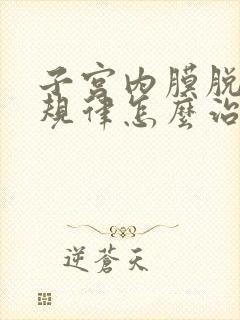 子宫内膜脱
规律怎麼治
逆蒼天